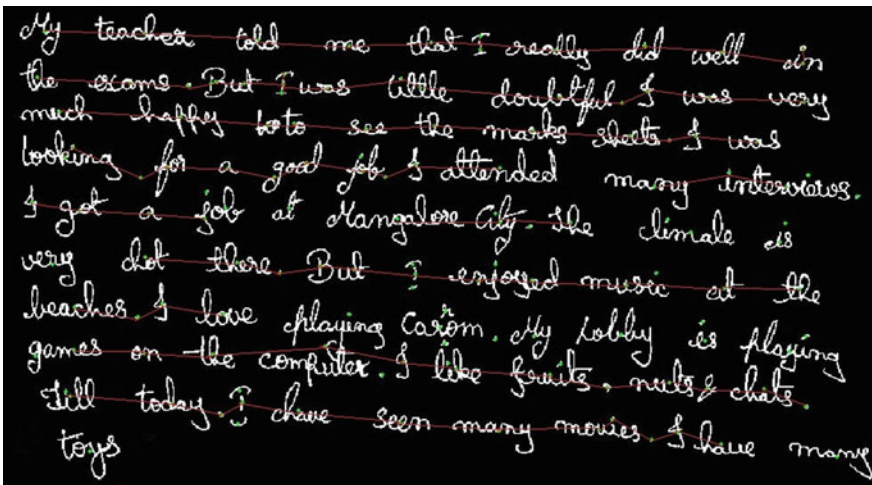 My teacher told me that I really did well in
the exams. But I was little doubtful. I was very
much happy to to see the marks sheets. I was
looking for a good job. I attended many interviews.
I got a job at Mangalore City. The climate is
very hot there. But I enjoyed music at the
beaches. I love playing Carom. My hobby is playing
games on the computer. I like fruits, nuts & chats.
Till today, I have seen many movies. I have many
toys